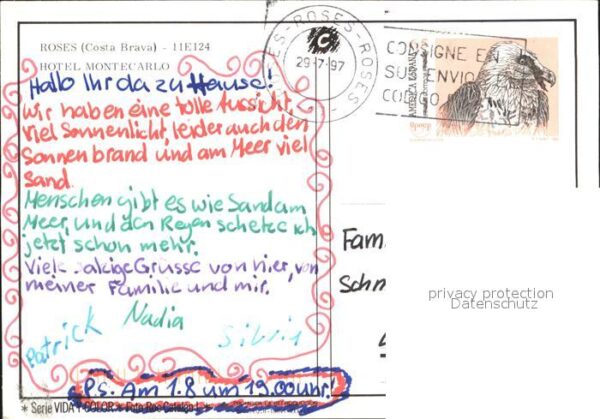 ROSES (Costa Brava) - 11E124
HOTEL MONTECARLO
Hallo Ihr da zu Hause!
Wir haben eine tolle Aussicht,
viel Sonnenlicht, leider auch den
Sonnenbrand und am Meer viel
Sand.
Menschen gibt es wie Sand am
Meer, und den Regen schetze ich
jetzt schon mehr.
Viele salzige Grüsse von hier, von
meiner Familie und mir.
Patrick
Nadia
Silvia
P.S. Am 1.8 um 19.00 uhr!
* Serie VIDA Y COLOR *
ROSES-ROSES
29-7-97
CONSIGNE EN
SU ENVIO
CODIGO
Fam.
Schn
privacy protection
Datenschutz